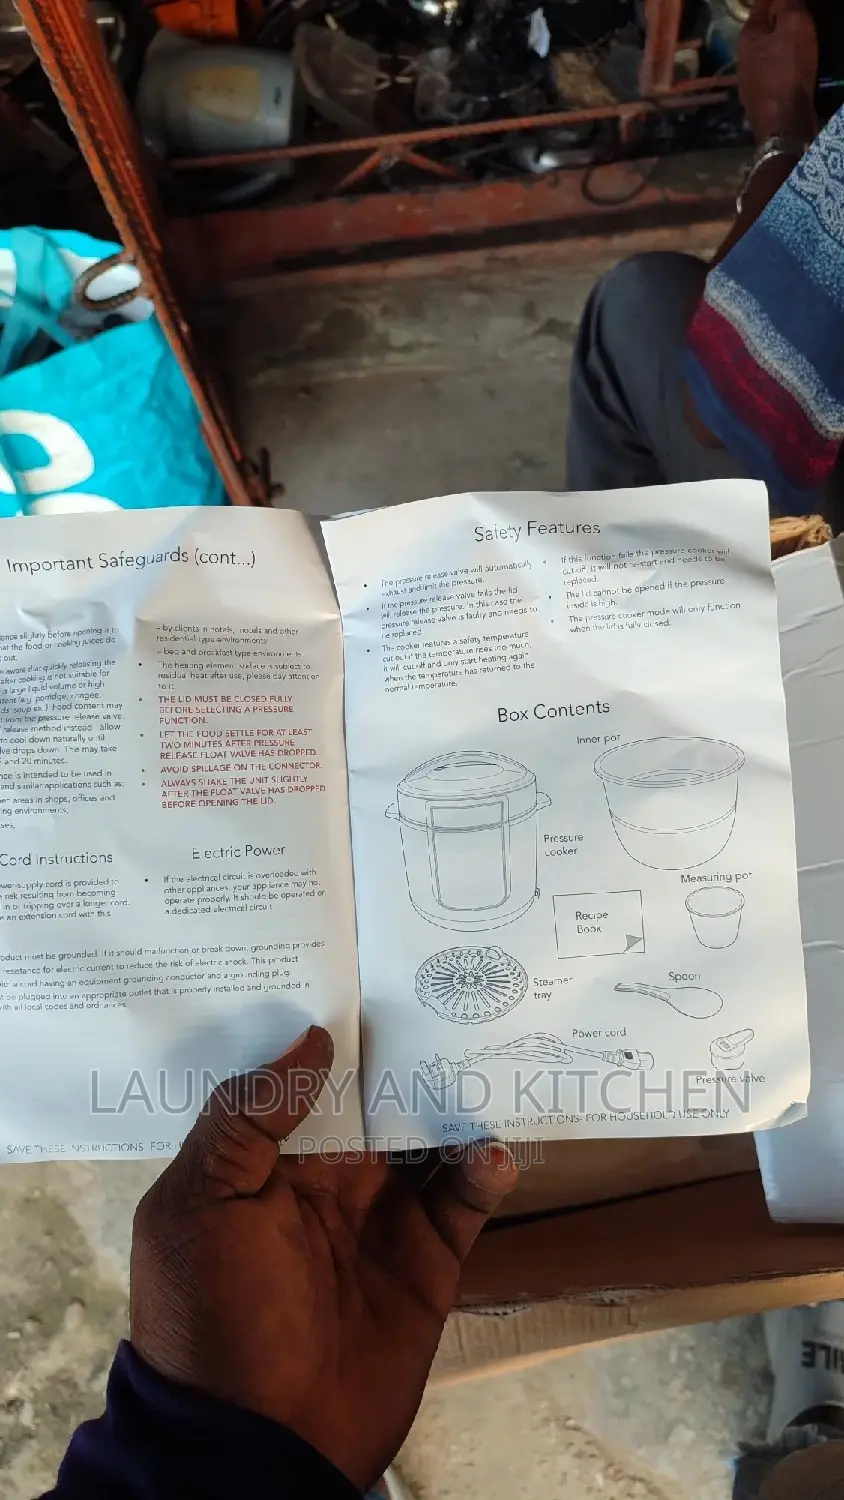 Important Safeguards (cont...)
slightly before opening it to
at the food or cooking juices do
out.
aware that quickly releasing the
after cooking is not suitable for
a large liquid volume or high
(e.g. porridge, congee,
soups etc.) Food content may
from the pressure release valve.
release method instead - allow
to cool down naturally until
drops down. The may take
and 20 minutes.
is intended to be used in
and similar applications such as:
areas in shops, offices and
environments;
– by clients in hotels, motels and other
residential type environments
– bed and breakfast type environments
• The heating element surface is subject to
residual heat after use, please pay attention
to it.
• THE LID MUST BE CLOSED FULLY
BEFORE SELECTING A PRESSURE
FUNCTION.
• LET THE FOOD SETTLE FOR AT LEAST
TWO MINUTES AFTER PRESSURE
RELEASE FLOAT VALVE HAS DROPPED.
• AVOID SPILLAGE ON THE CONNECTOR.
• ALWAYS SHAKE THE UNIT SLIGHTLY
AFTER THE FLOAT VALVE HAS DROPPED
BEFORE OPENING THE LID.
Cord Instructions
supply cord is provided to
risk resulting from becoming
in or tripping over a longer cord.
an extension cord with this
Electric Power
• If the electrical circuit is overloaded with
other appliances, your appliance may not
operate properly. It should be operated on
a dedicated electrical circuit
product must be grounded. If it should malfunction or break down, grounding provides
resistance for electric current to reduce the risk of electric shock. This product
with a cord having an equipment grounding conductor and a grounding plug.
be plugged into an appropriate outlet that is properly installed and grounded in
with all local codes and ordinances
SAVE THESE INSTRUCTIONS- FOR
Safety Features
• The pressure release valve will automatically
exhaust and limit the pressure.
• If the pressure release valve fails the lid
will release the pressure. In this case the
pressure release valve is faulty and needs to
be replaced.
• The cooker features a safety temperature
cut out. If the temperature rises too much,
it will cut off and only start heating again
when the temperature has returned to the
normal temperature.
• If this function fails the pressure cooker will
cut off, it will not re-start and needs to be
replaced.
• The lid cannot be opened if the pressure
inside is high.
• The pressure cooker mode will only function
when the lid is fully closed.
Box Contents
Inner pot
Pressure
cooker
Measuring pot
Recipe
Book
Steamer
tray
Spoon
Power cord
Pressure valve
SAVE THESE INSTRUCTIONS- FOR HOUSEHOLD USE ONLY
LAUNDRY AND KITCHEN
POSTED ON JIJI